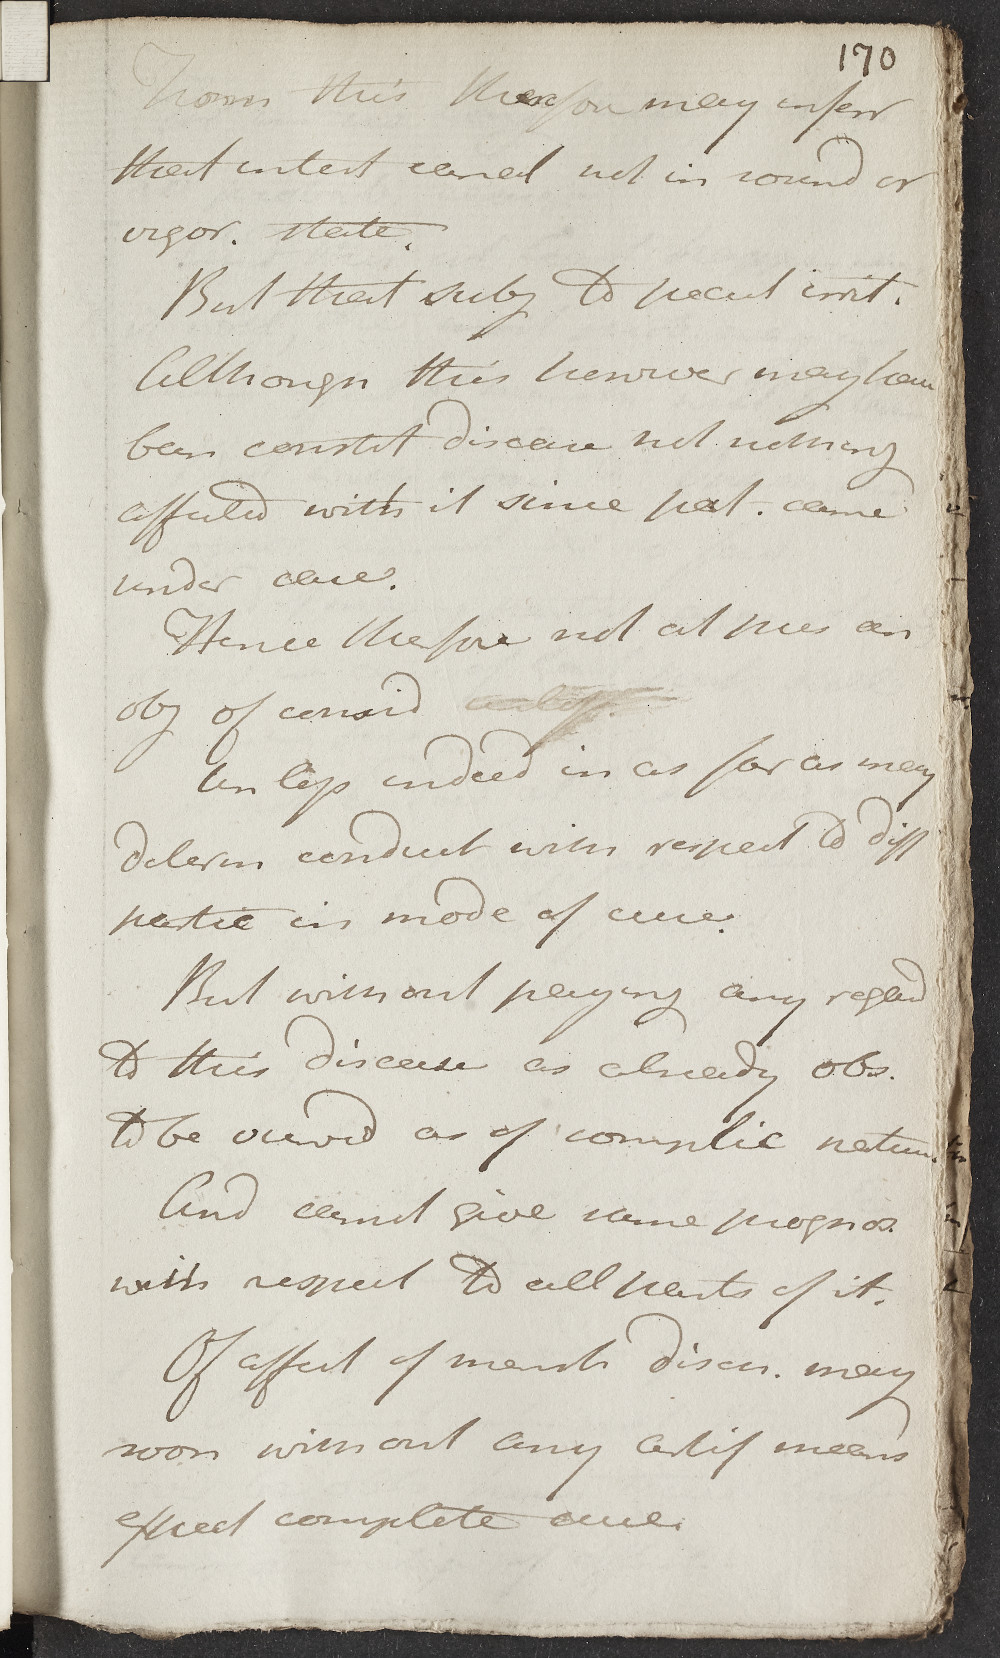 170
From this therefore may inferr
that intest canal not in sound or
vigor. state.
But that subj to pecul irrit.
Although this however may have
been constit disease not nothing
affected with it since pat. came
under care.
Hence therefore not at pres an
obj of consid
Unless indeed in as far as may
determ conduct with respect to diff
partic in mode of cure.
But without paying any regard
to this disease as already obs.
to be viewd as of complic nature.
And cannot give same prognos.
with respect to all parts of it.
Of affect of menst disch. may
soon without any artif means
expect complete cure.